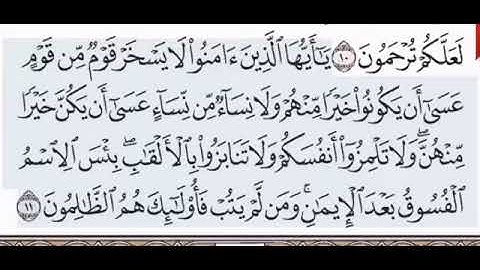 لَعَلَّكُمْ تُرْحَمُونَ ۝١٠ يَـٰٓأَيُّهَا ٱلَّذِينَ ءَامَنُوا۟ لَا يَسْخَرْ قَوْمٌ مِّن قَوْمٍ
عَسَىٰٓ أَن يَكُونُوا۟ خَيْرًا مِّنْهُمْ وَلَا نِسَآءٌ مِّن نِّسَآءٍ عَسَىٰٓ أَن يَكُنَّ خَيْرًا
مِّنْهُنَّ ۖ وَلَا تَلْمِزُوٓا۟ أَنفُسَكُمْ وَلَا تَنَابَزُوا۟ بِٱلْأَلْقَـٰبِ ۖ بِئْسَ ٱلِٱسْمُ
ٱلْفُسُوقُ بَعْدَ ٱلْإِيمَـٰنِ ۚ وَمَن لَّمْ يَتُبْ فَأُو۟لَـٰٓئِكَ هُمُ ٱلظَّـٰلِمُونَ ۝١١